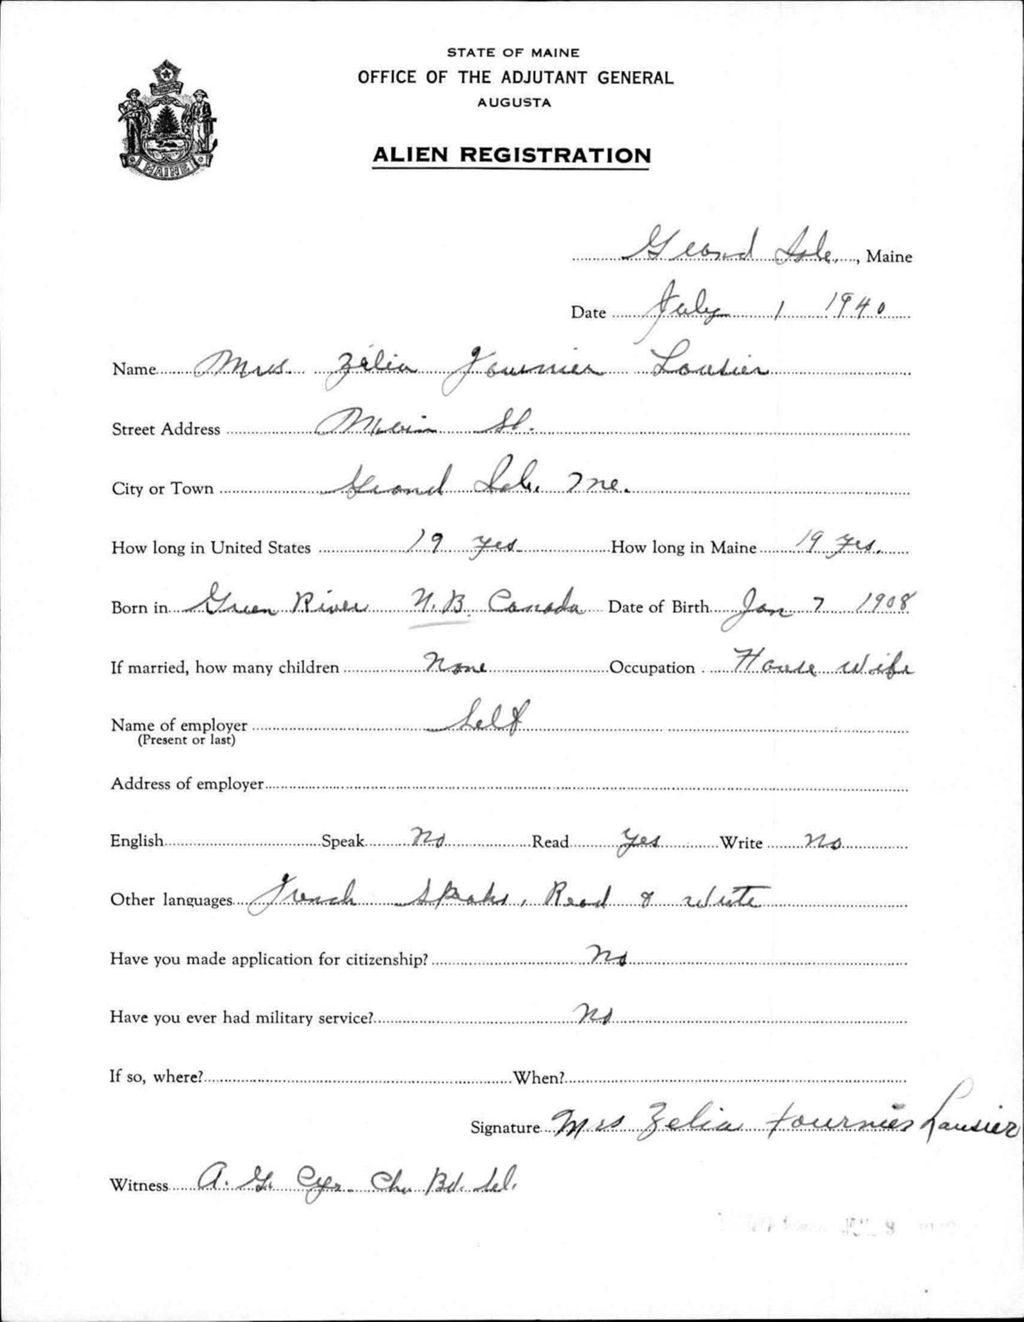 STATE OF MAINE
OFFICE OF THE ADJUTANT GENERAL
AUGUSTA
MAINE
ALIEN REGISTRATION
Grand Isle, Maine
Date July 1 1940
Name Mrs. Zélia Fournier Lausier
Street Address Main St.
City or Town Grand Isle, Me.
How long in United States 19 yrs How long in Maine 19 yrs.
Born in Green River N.B. Canada Date of Birth Jan 7 1908
If married, how many children None Occupation House wife
Name of employer Self
(Present or last)
Address of employer
English Speak No Read Yes Write No
Other languages French Speaks, Read & write
Have you made application for citizenship? No
Have you ever had military service? No
If so, where? When?
Signature Mrs Zelia Fournier Lausier
Witness A. G. Cyr Chr Bd. Sel.